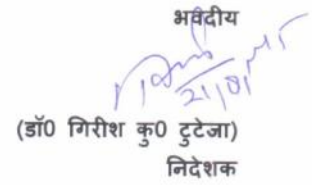 भवदीय
21/01/15
(डॉ0 गिरीश कु0 टुटेजा)
निदेशक